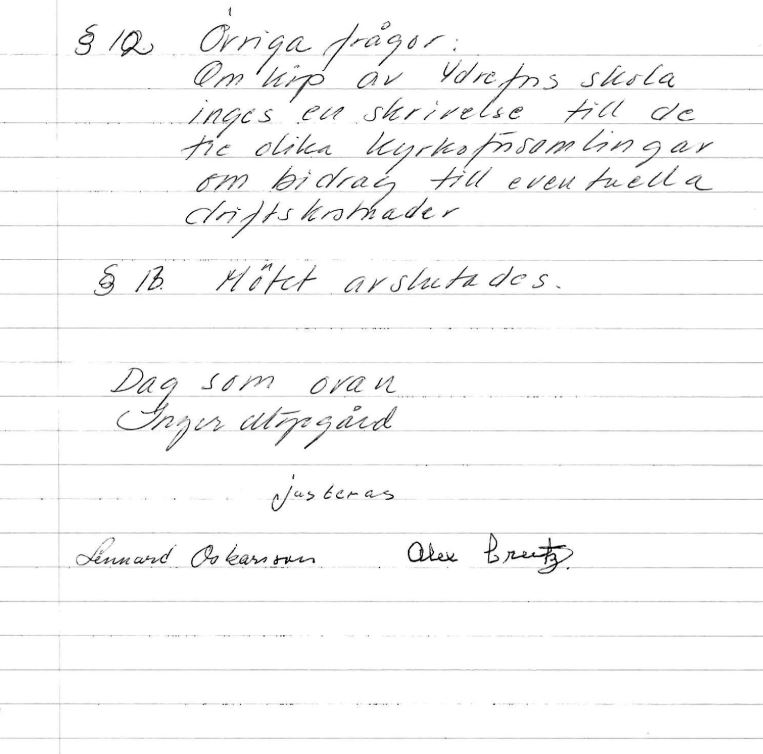 § 12 Övriga frågor:
Om köp av Ydrefors skola
inges en skrivelse till de
tre olika kyrkoförsamlingar
om bidrag till eventuella
driftskostnader
§ 13. Mötet avslutades.
Dag som ovan
Inger
justeras
Lennard Oskarsson Alex Creutz